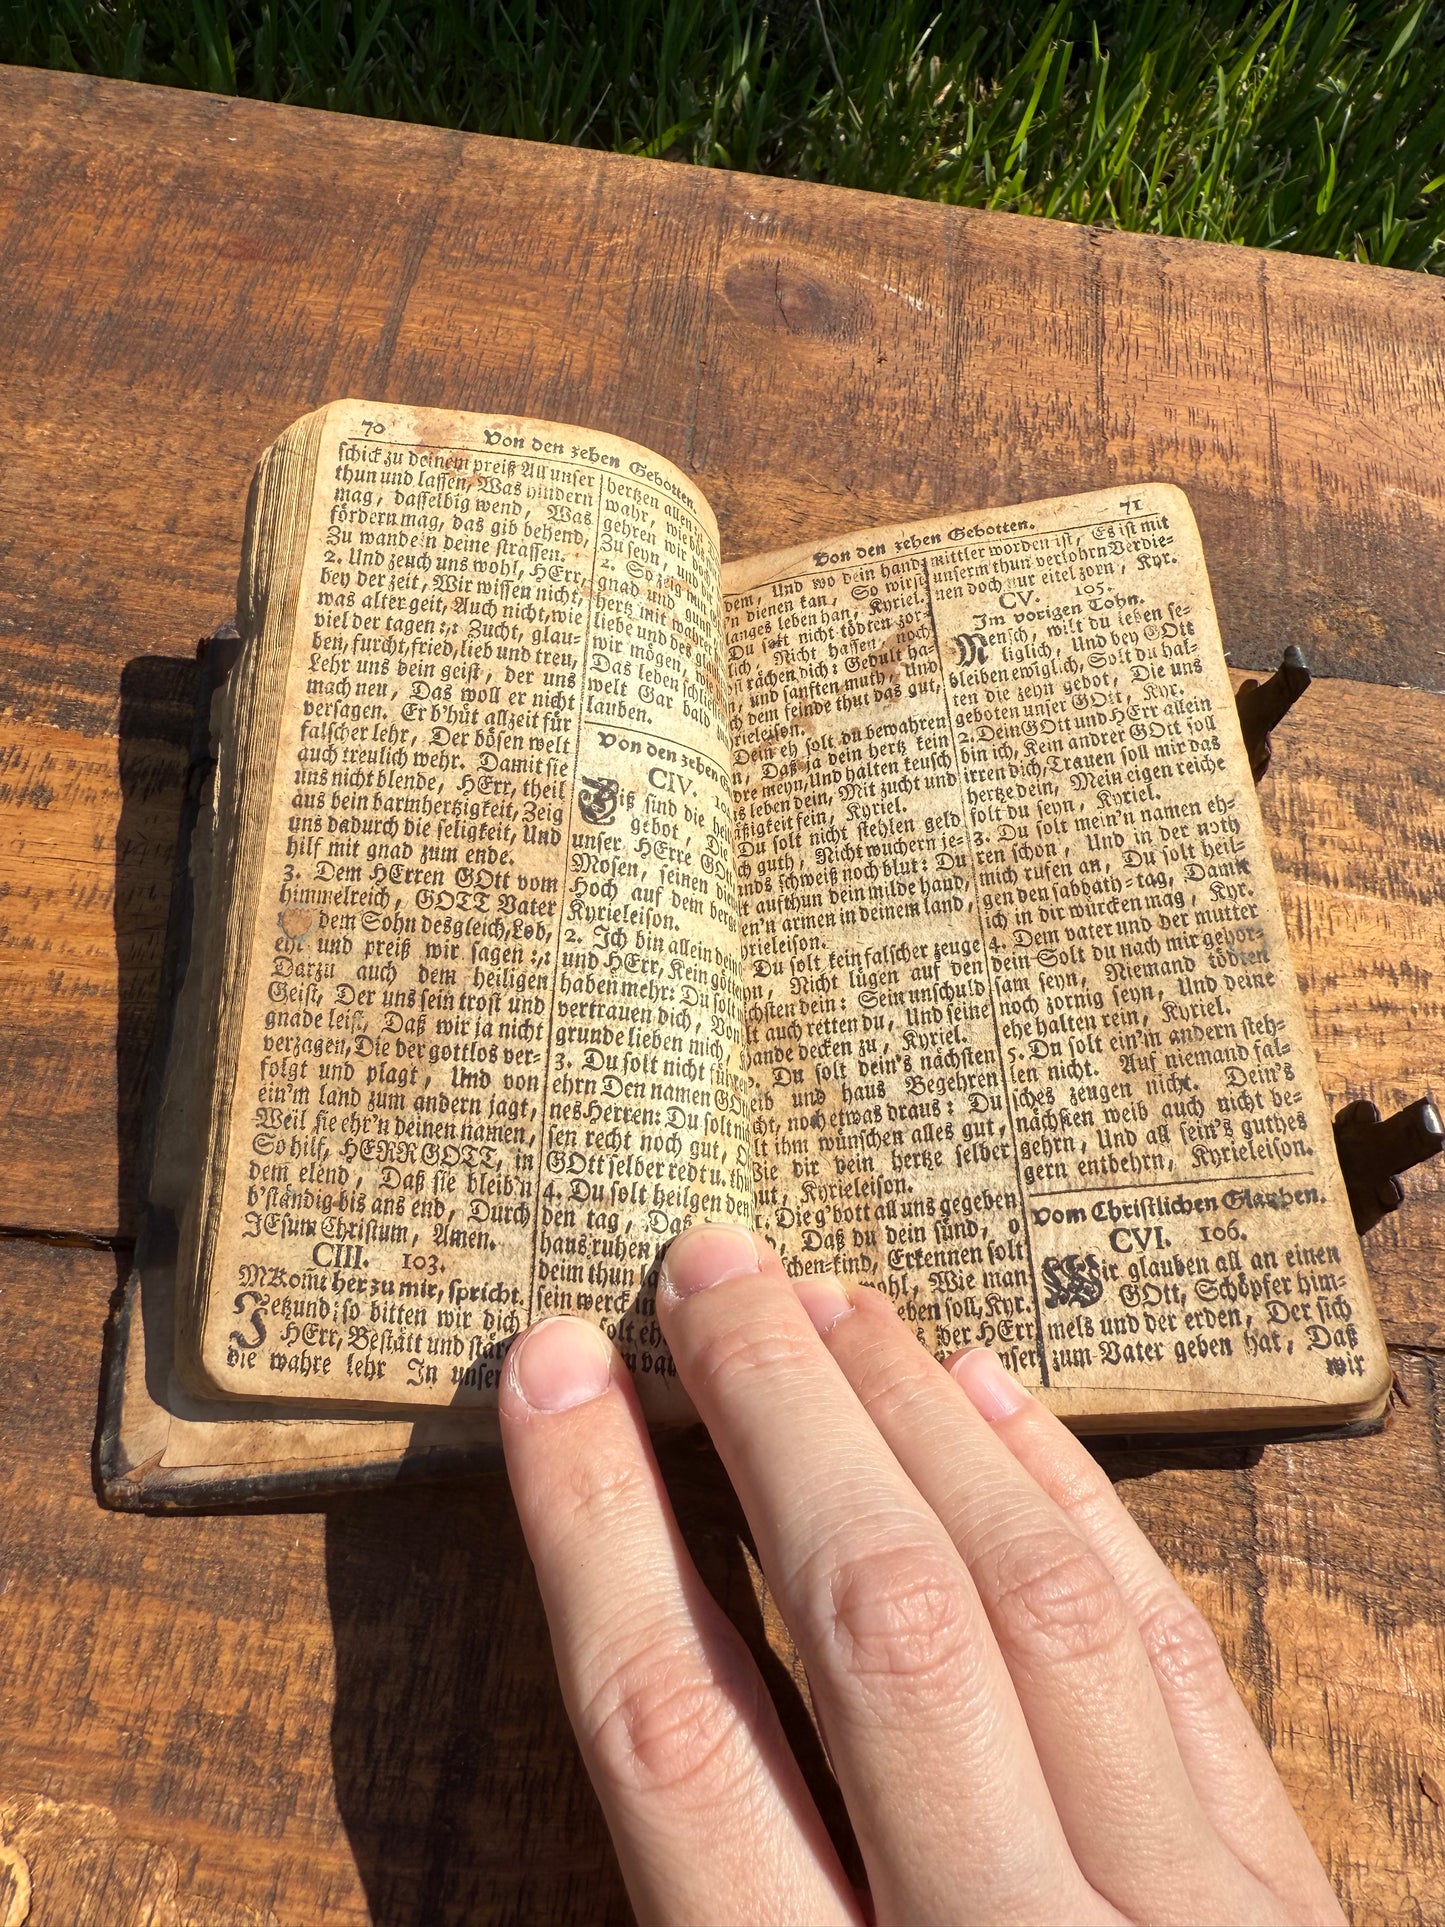 70
Von den zehen Gebotten.
schick zu deinem preiß All unser
thun und lassen, Was hindern
mag, dasselbig wend, Was
fördern mag, das gib behend,
Zu wandeln deine strassen.
2. Und zeuch uns wohl, HErr,
bey der zeit, Wir wissen nicht,
was alter geit, Auch nicht, wie
viel der tagen :,: Zucht, glau-
ben, furcht, fried, lieb und treu,
Lehr uns dein geist, der uns
mach neu, Das woll er nicht
versagen. Er b'hüt allzeit für
falscher lehr, Der bösen welt
auch treulich wehr. Damit sie
uns nicht blende, HErr, theil
aus dein barmhertzigkeit, Zeig
uns dadurch die seligkeit, Und
hilf mit gnad zum ende.
3. Dem HErren GOtt vom
himmelreich, GOTT Vater
dem Sohn desgleich, Lob,
ehr und preiß wir sagen :,:
Darzu auch dem heiligen
Geist, Der uns sein trost und
gnade leist, Daß wir ja nicht
verzagen, Die der gottlos ver-
folgt und plagt, Und von
ein'm land zum andern jagt,
Weil sie ehr'n deinen namen,
So hilf, HERR GOTT, in
dem elend, Daß sie bleib'n
b'ständig bis ans end, Durch
JEsum Christum, Amen.
CIII. 103.
Kom̃t her zu mir, spricht.
Jetzund; so bitten wir dich
HErr, Bestätt und stär
die wahre lehr In unser
hertzen allen
wahr, wie
gehren wir doch
Zu seyn, und
2. So zeig nun
gnad und gunst
hertz mit wahrer
liebe und des
wir mögen,
Das leben schlie
welt Gar bald
lauben.
Von den zehen
CIV.
Diß sind die heil
gebot, Die
unser HErre GOtt
Mosen, seinen die
Hoch auf dem berge
Kyrieleison.
2. Ich bin allein dein
und HErr, Kein götter
haben mehr: Du solt
vertrauen dich, Von
grunde lieben mich,
3. Du solt nicht führen
ehrn Den namen GOtt
nes Herren: Du solt nicht
sen recht noch gut,
GOtt selber redt u. thut
4. Du solt heilgen den
den tag, Daß
haus ruhen
deim thun
sein werck in
solt eh
71
Von den zehen Gebotten.
dem, Und wo dein hand
dienen kan, So wirst
langes leben han, Kyriel.
Du solt nicht tödten zor-
lich, Nicht hassen, noch
rächen dich: Gedult ha-
und sanften muth, Und
dem feinde thun das gut,
Dein eh solt du bewahren
Daß ja dein hertz kein
meyn, Und halten keusch
leben dein, Mit zucht und
fein, Kyriel.
Du solt nicht stehlen geld
guth, Nicht wuchern je-
schweiß noch blut: Du
aufthun dein milde hand,
armen in deinem land,
Du solt kein falscher zeuge
Nicht lügen auf den
dein: Sein unschuld
auch retten du, Und seine
decken zu, Kyriel.
Du solt dein's nächsten
und haus Begehren
nicht, noch etwas draus: Du
ihm wünschen alles gut,
Wie dir dein hertze selber
Kyrieleison.
Die g'bott all uns gegeben
Daß du dein sünd, o
Erkennen solt
wohl, Wie man
leben soll, Kyr.
der HErr
unser
mittler worden ist, Es ist mit
unserm thun verlohrn Verdie-
nen doch nur eitel zorn, Kyr.
CV. 105.
Im vorigen Tohn.
Mensch, wilt du leben se-
liglich, Und bey GOtt
bleiben ewiglich, Solt du hal-
ten die zehn gebot, Die uns
geboten unser GOtt, Kyr.
2. Dein GOtt und HErr allein
bin ich, Kein andrer GOtt soll
irren dich, Trauen soll mir das
hertze dein, Mein eigen reiche
solt du seyn, Kyriel.
3. Du solt mein'n namen eh-
ren schon, Und in der noth
mich rufen an, Du solt heil-
gen den sabbath-tag, Damit
ich in dir würcken mag, Kyr.
4. Dem vater und der mutter
dein Solt du nach mir gehor-
sam seyn, Niemand tödten
noch zornig seyn, Und deine
ehe halten rein, Kyriel.
5. Du solt ein'm andern steh-
len nicht. Auf niemand fal-
sches zeugen nicht. Dein's
nächsten weib auch nicht be-
gehrn, Und all sein's guthes
gern entbehrn, Kyrieleison.
Vom Christlichen Glauben.
CVI. 106.
Wir glauben all an einen
GOtt, Schöpfer him-
mels und der erden, Der sich
zum Vater geben hat, Daß
wir